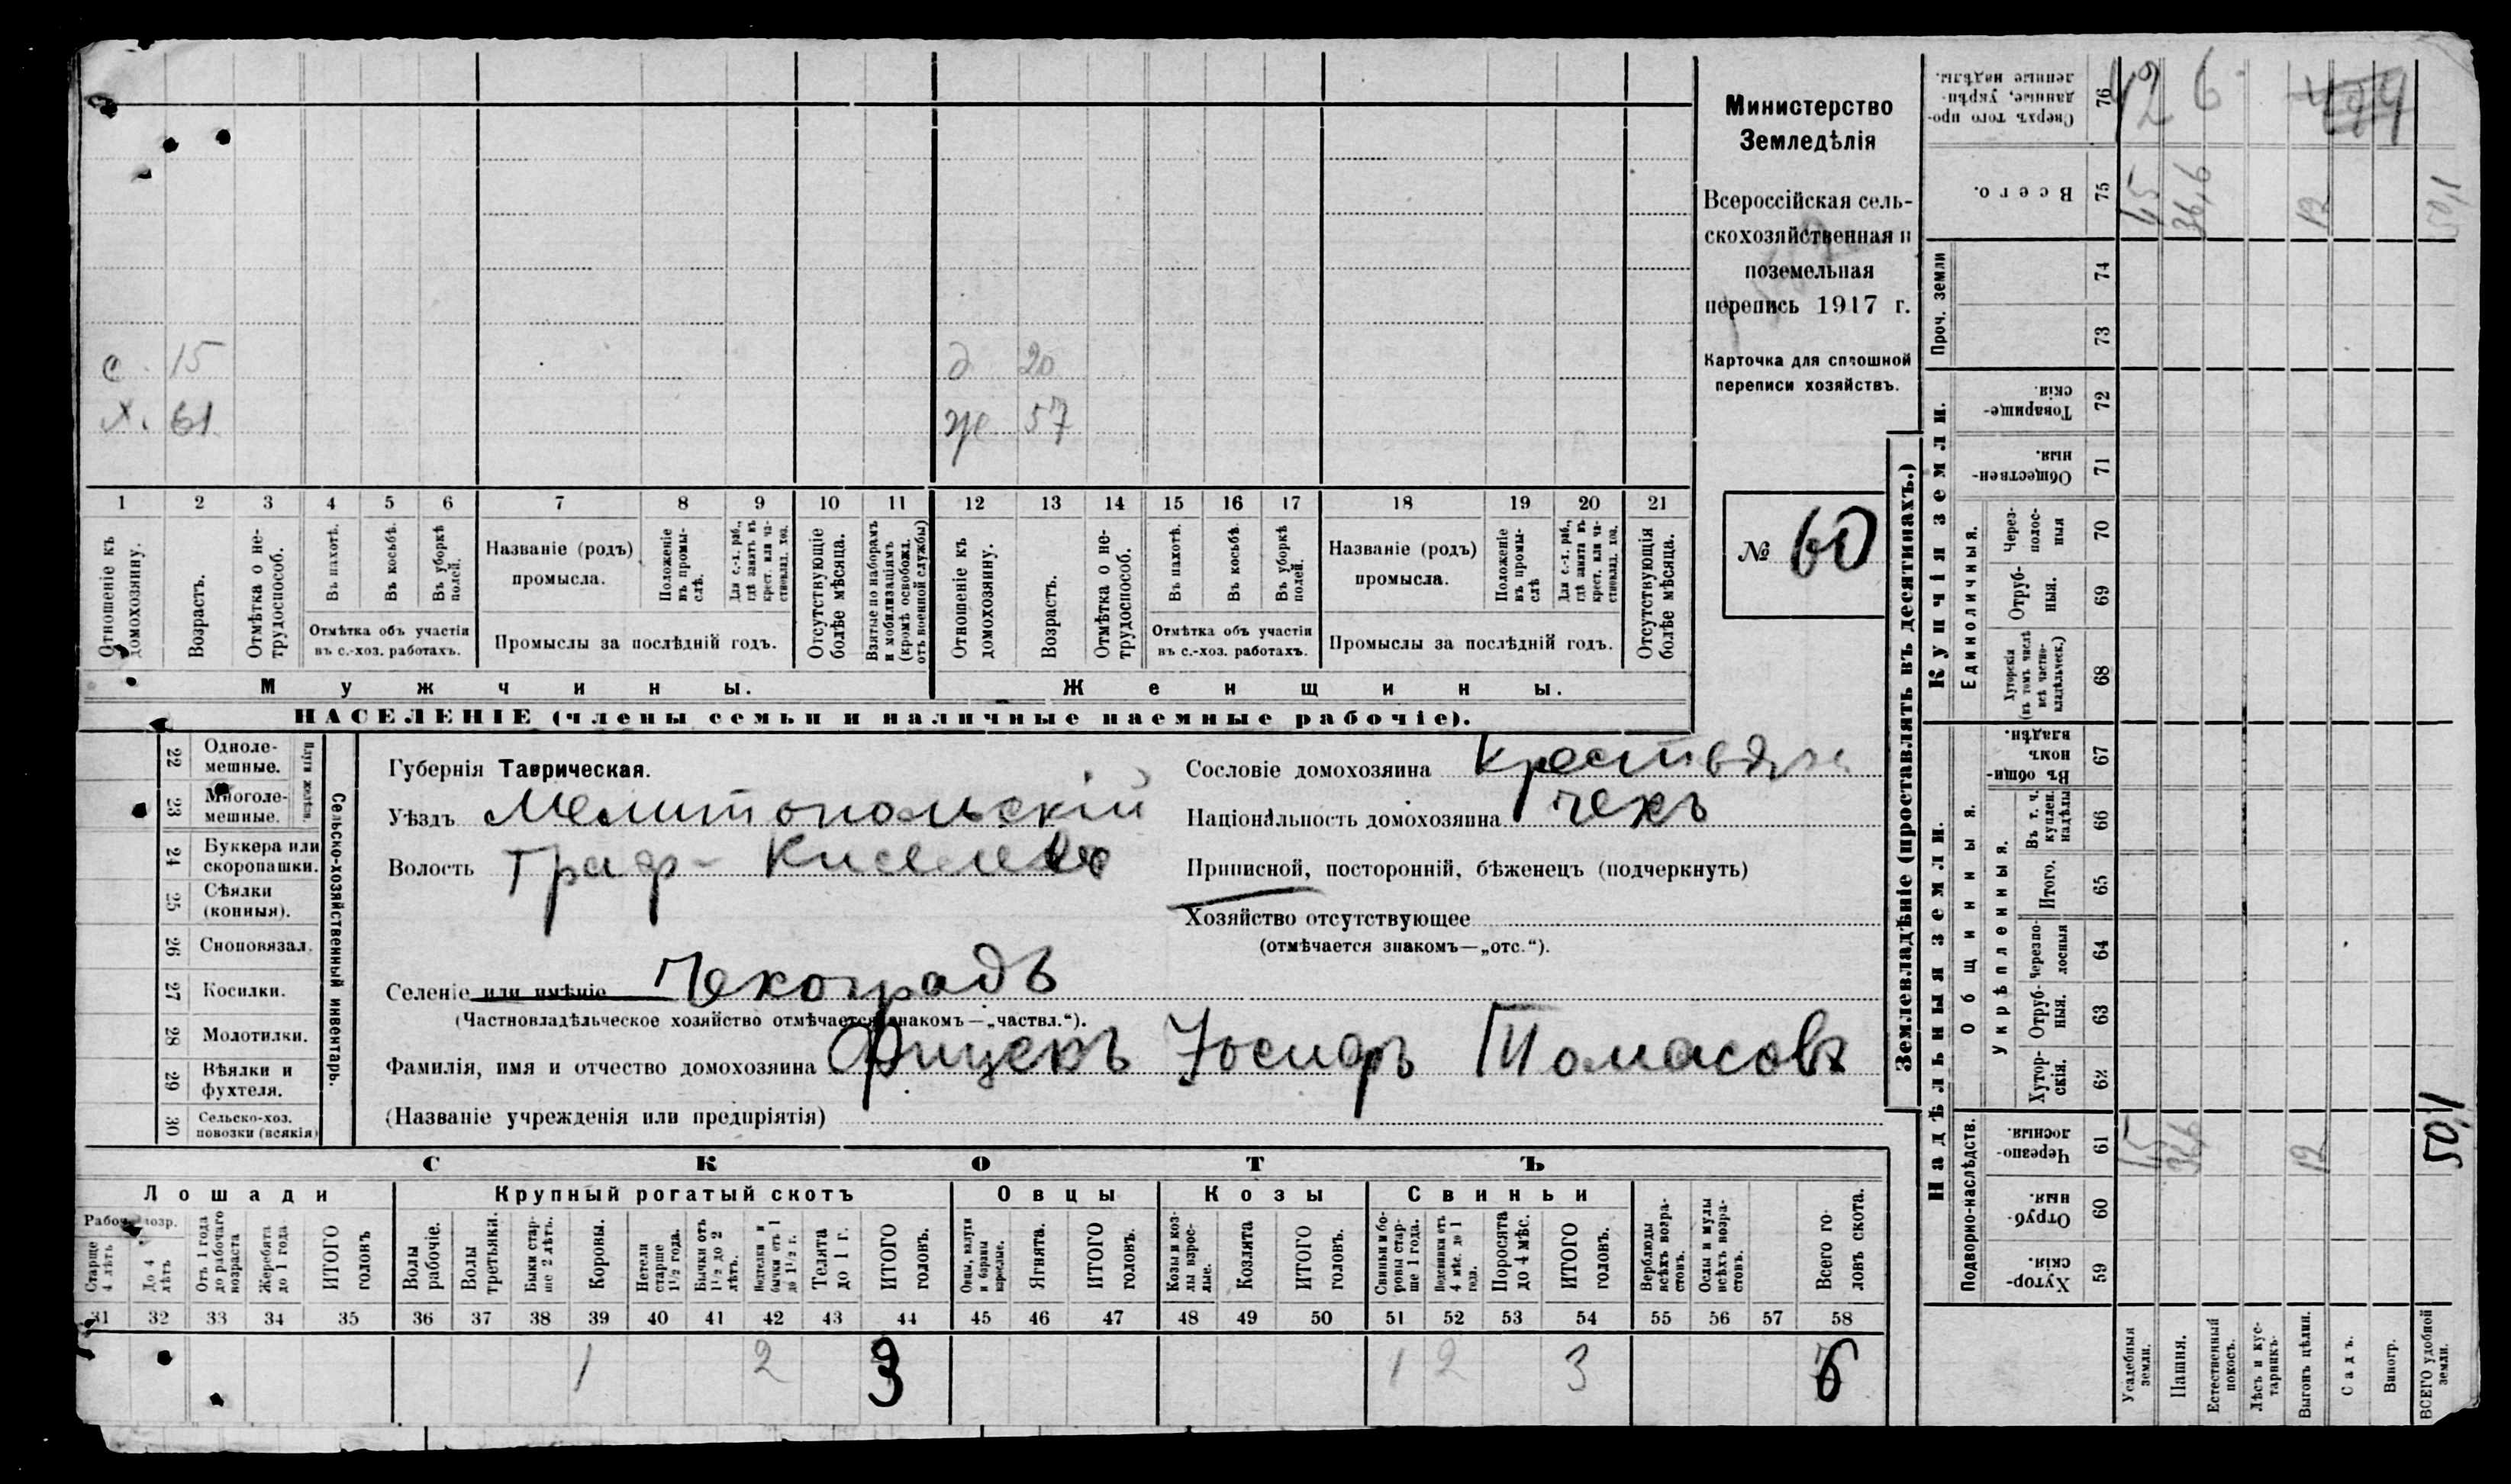 с. 15 д 20
х. 61 ж 57
1 2 3 4 5 6 7 8 9 10 11 12 13 14 15 16 17 18 19 20 21
Отношеніе къ домохозяину.
Возрастъ.
Отмѣтка о не-
трудоспособ.
Въ пахотѣ.
Въ косьбѣ.
Въ уборкѣ полей.
Отмѣтка объ участіи
въ с.-хоз. работахъ.
Названіе (родъ)
промысла.
Положеніе въ промы-
слѣ.
Для с.-х. раб., гдѣ занятъ въ крест. или ча-
стновлад. хоз.
Промыслы за послѣдній годъ.
Отсутствующіе болѣе мѣсяца.
Взятые по наборамъ и мобилизаціямъ (кромѣ освобожд. отъ военной службы)
Отношеніе къ домохозяину.
Возрастъ.
Отмѣтка о не-
трудоспособ.
Въ пахотѣ.
Въ косьбѣ.
Въ уборкѣ полей.
Отмѣтка объ участіи
въ с.-хоз. работахъ.
Названіе (родъ)
промысла.
Положеніе въ промы-
слѣ
Для с.-х. раб., гдѣ занята въ крест. или ча-
стновлад. хоз.
Промыслы за послѣдній годъ.
Отсутствующія болѣе мѣсяца.
Мужчины. Женщины.
НАСЕЛЕНІЕ (члены семьи и наличные наемные рабочіе).
Министерство
Земледѣлія
Всероссійская сель-
скохозяйственная и
поземельная
перепись 1917 г.
Карточка для сплошной
переписи хозяйствъ.
№ 60
22 Одноле-
мешные.
23 Многоле-
мешные.
Плуги желѣзн.
24 Буккера или
скоропашки.
25 Сѣялки
(конныя).
26 Сноповязал.
27 Косилки.
28 Молотилки.
29 Вѣялки и
фухтеля.
30 Сельско-хоз.
повозки (всякія)
Сельско-хозяйственный инвентарь.
Губернія Таврическая.
Уѣздъ Мелитопольскій
Волость Граф-
Селеніе или имѣніе Чехоградъ
(Частновладѣльческое хозяйство отмѣчается знакомъ—„частвл.“).
Фамилія, имя и отчество домохозяина Фицекъ Іосифъ Томасовъ
(Названіе учрежденія или предпріятія)
Сословіе домохозяина
Національность домохозяина чехъ
Приписной, посторонній, бѣженецъ (подчеркнуть)
Хозяйство отсутствующее
(отмѣчается знакомъ—„отс.“).
СКОТЪ
Лошади
Рабоч. возр.
Старше 4 лѣтъ
До 4 лѣтъ
Отъ 1 года до рабочаго возраста
Жеребята до 1 года
ИТОГО головъ
Крупный рогатый скотъ
Волы рабочіе.
Волы третьяки.
Быки стар-
ше 2 лѣтъ.
Коровы.
Нетели старше 1½ года.
Бычки отъ 1½ до 2 лѣтъ.
Подтелки и бычки отъ 1 до 1½ г.
Телята до 1 г.
ИТОГО головъ.
Овцы
Овцы, валухи и бараны взрослые.
Ягнята.
ИТОГО головъ.
Козы
Козы и коз-
лы взрос-
лые.
Козлята
ИТОГО головъ.
Свиньи
Свиньи и бо-
ровы стар-
ше 1 года.
Подсвинки отъ 4 мѣс. до 1 года.
Поросята до 4 мѣс.
ИТОГО головъ.
Верблюды всѣхъ возра-
стовъ.
Ослы и мулы всѣхъ возра-
стовъ.
Всего го-
ловъ скота.
31 32 33 34 35 36 37 38 39 40 41 42 43 44 45 46 47 48 49 50 51 52 53 54 55 56 57 58
1 2 3 1 2 3 6
Землевладѣніе (проставлять въ десятинахъ.)
Купчія земли.
Надѣльныя земли.
Сверхъ того про-
данные, укрѣп-
ленные надѣлы. 76
Всего. 75 1,5 36,6 12 50,1
Проч. земли
74
73
Товарище-
скія. 72
Обществен-
ныя. 71
Единоличныя.
Через-
полос-
ныя 70
Отруб-
ныя. 69
Хуторскія
(въ томъ числѣ
всѣ частно-
владѣльческ.) 68
Общинныя.
Въ общин-
номъ
владѣн. 67
Укрѣпленныя.
Въ т. ч.
куплен.
надѣлы 66
Итого. 65
Черезпо-
лосныя 64
Отруб-
ныя. 63
Хутор-
скія. 62
Подворно-наслѣдств.
Черезпо-
лосныя. 61 1,5 36,6 12 50,1
Отруб-
ныя. 60
Хутор-
скія. 59
Усадебныя земли.
Пашня.
Естественный покосъ.
Лѣсъ и кус-
тарникъ.
Выгонъ цѣлин.
Садъ.
Виногр.
ВСЕГО удобной земли.